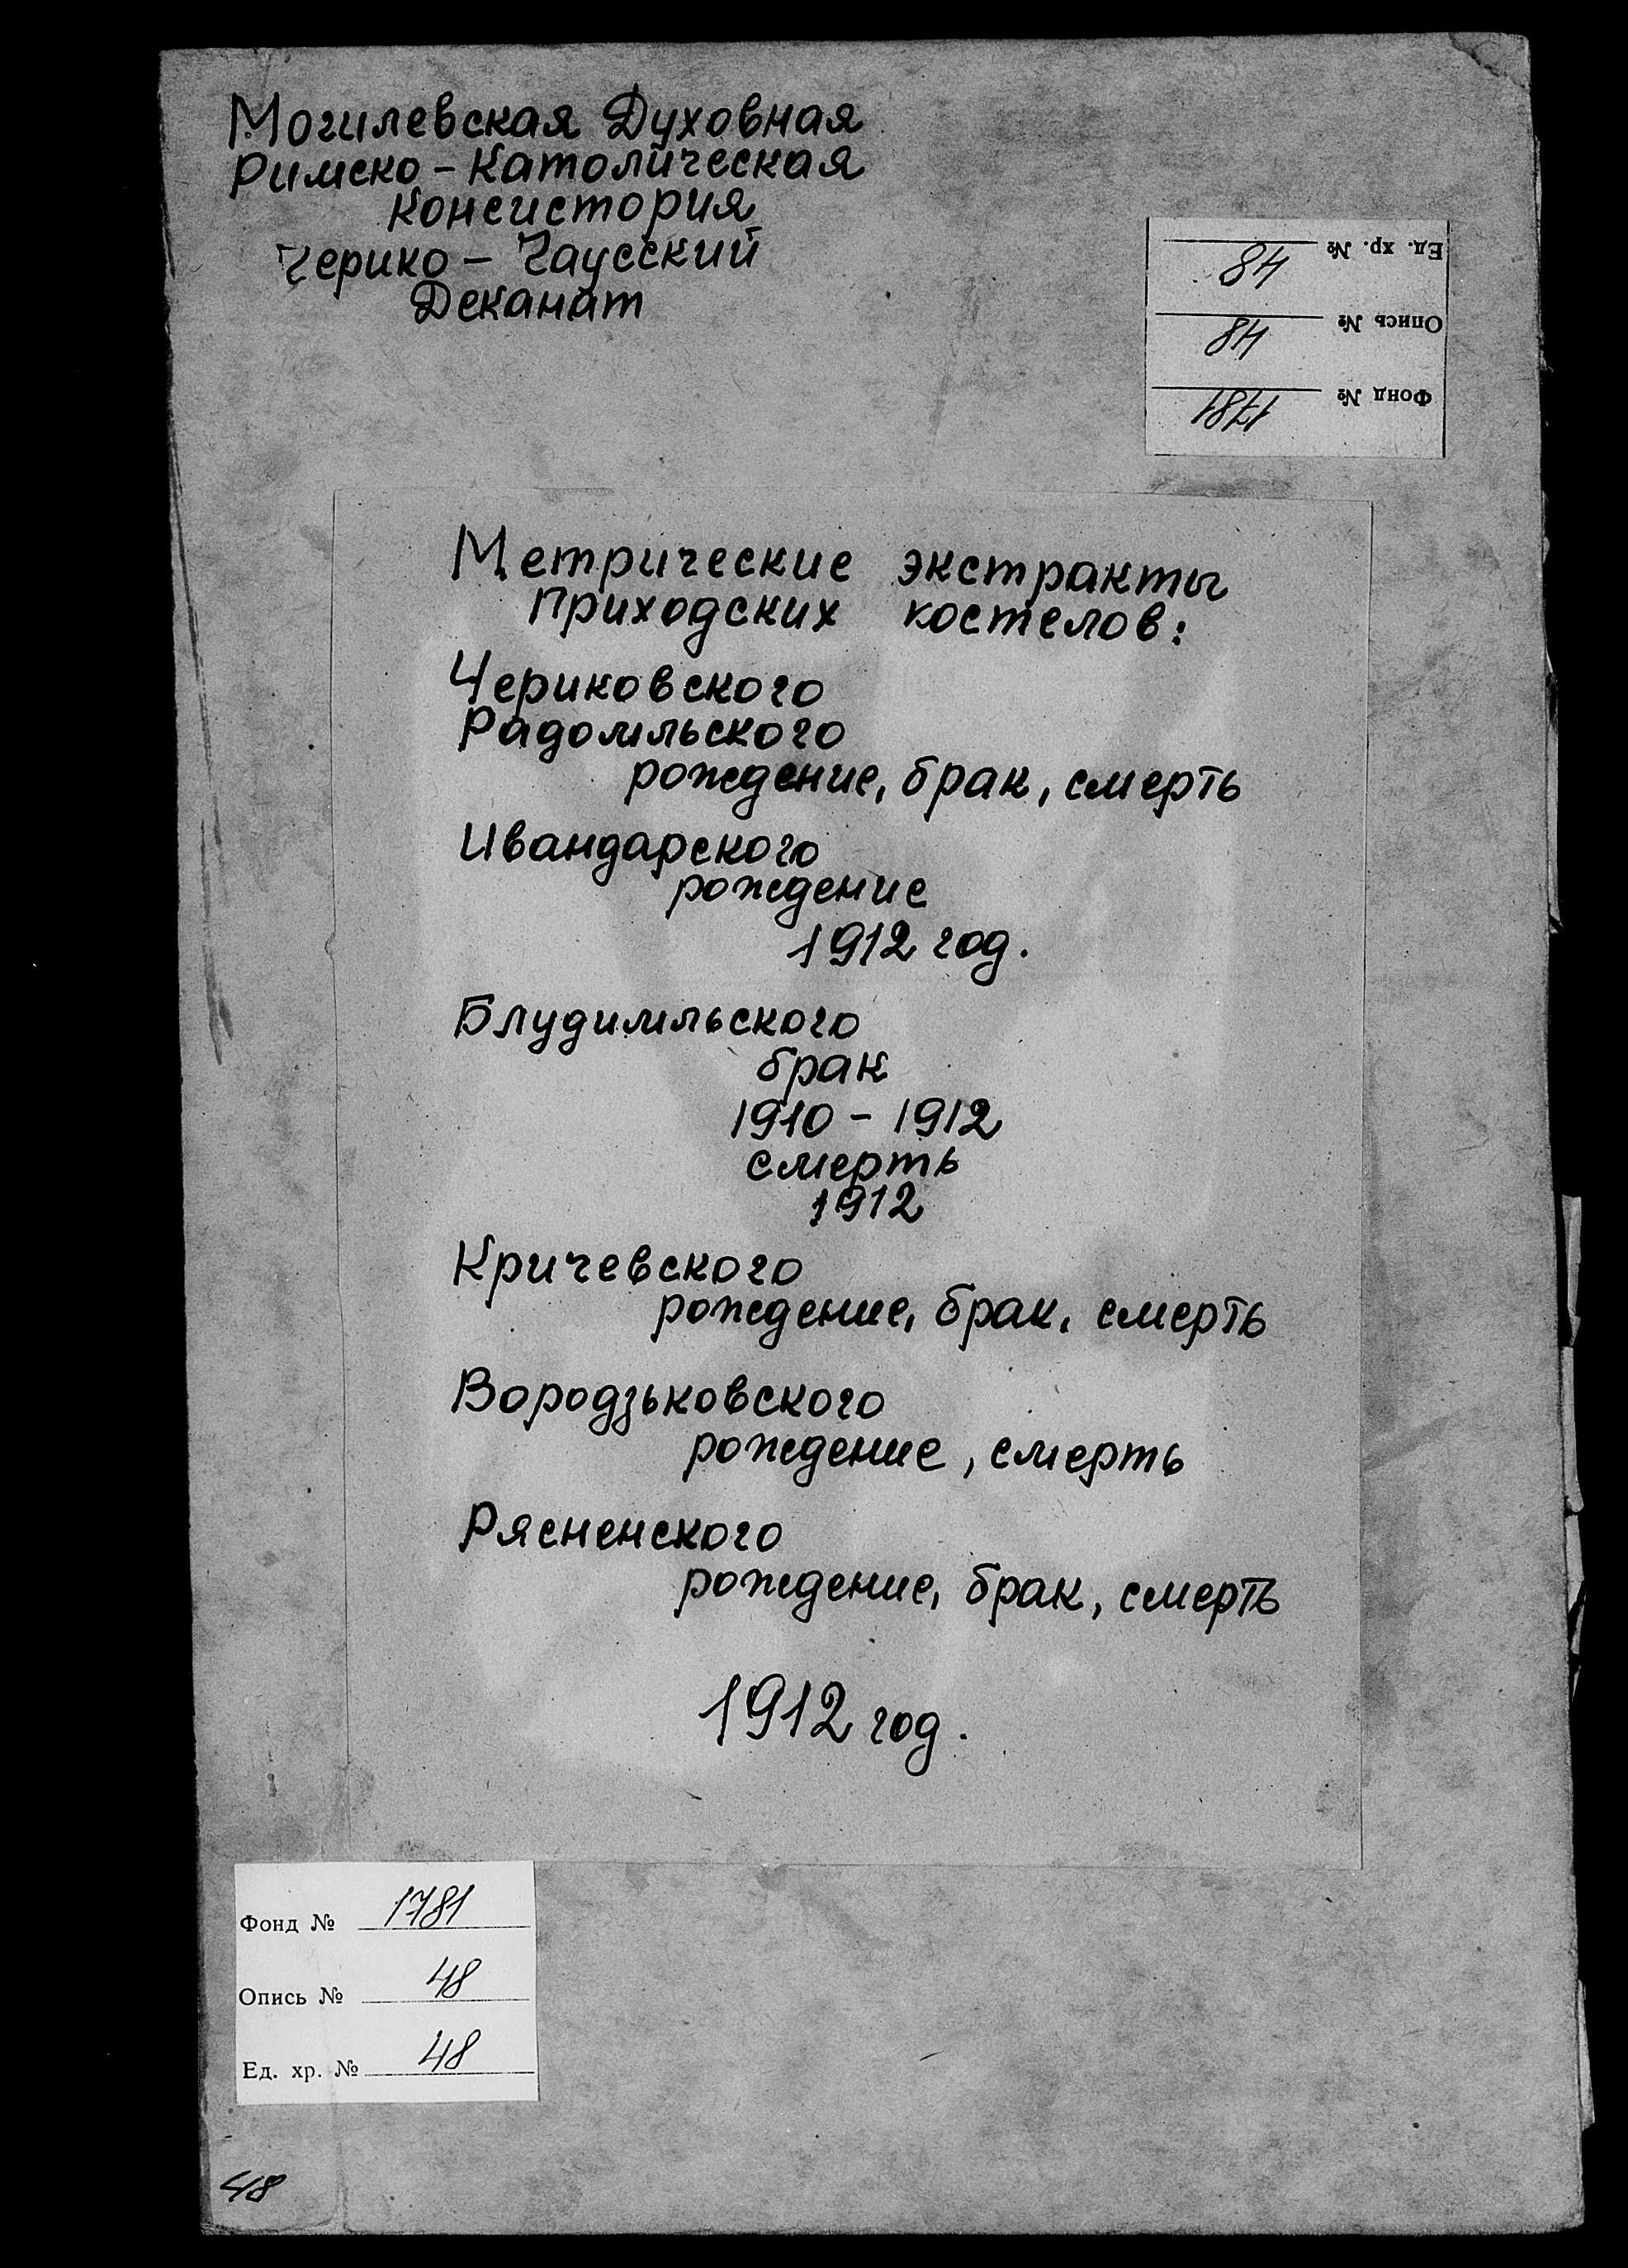 Могилевская Духовная
Римско-Католическая
Консистория
Черико-Чаусский
Деканат
Ед. хр. № 48
Опись № 48
Фонд № 1781
Метрические экстракты
приходских костелов:
Чериковского
Радомльского
рождение, брак, смерть
Ивандарского
рождение
1912 год.
Блудимльского
брак
1910 - 1912
смерть
1912
Кричевского
рождение, брак, смерть
Вородзьковского
рождение, смерть
Рясненского
рождение, брак, смерть
1912 год.
Фонд № 1781
Опись № 48
Ед. хр. № 48
48